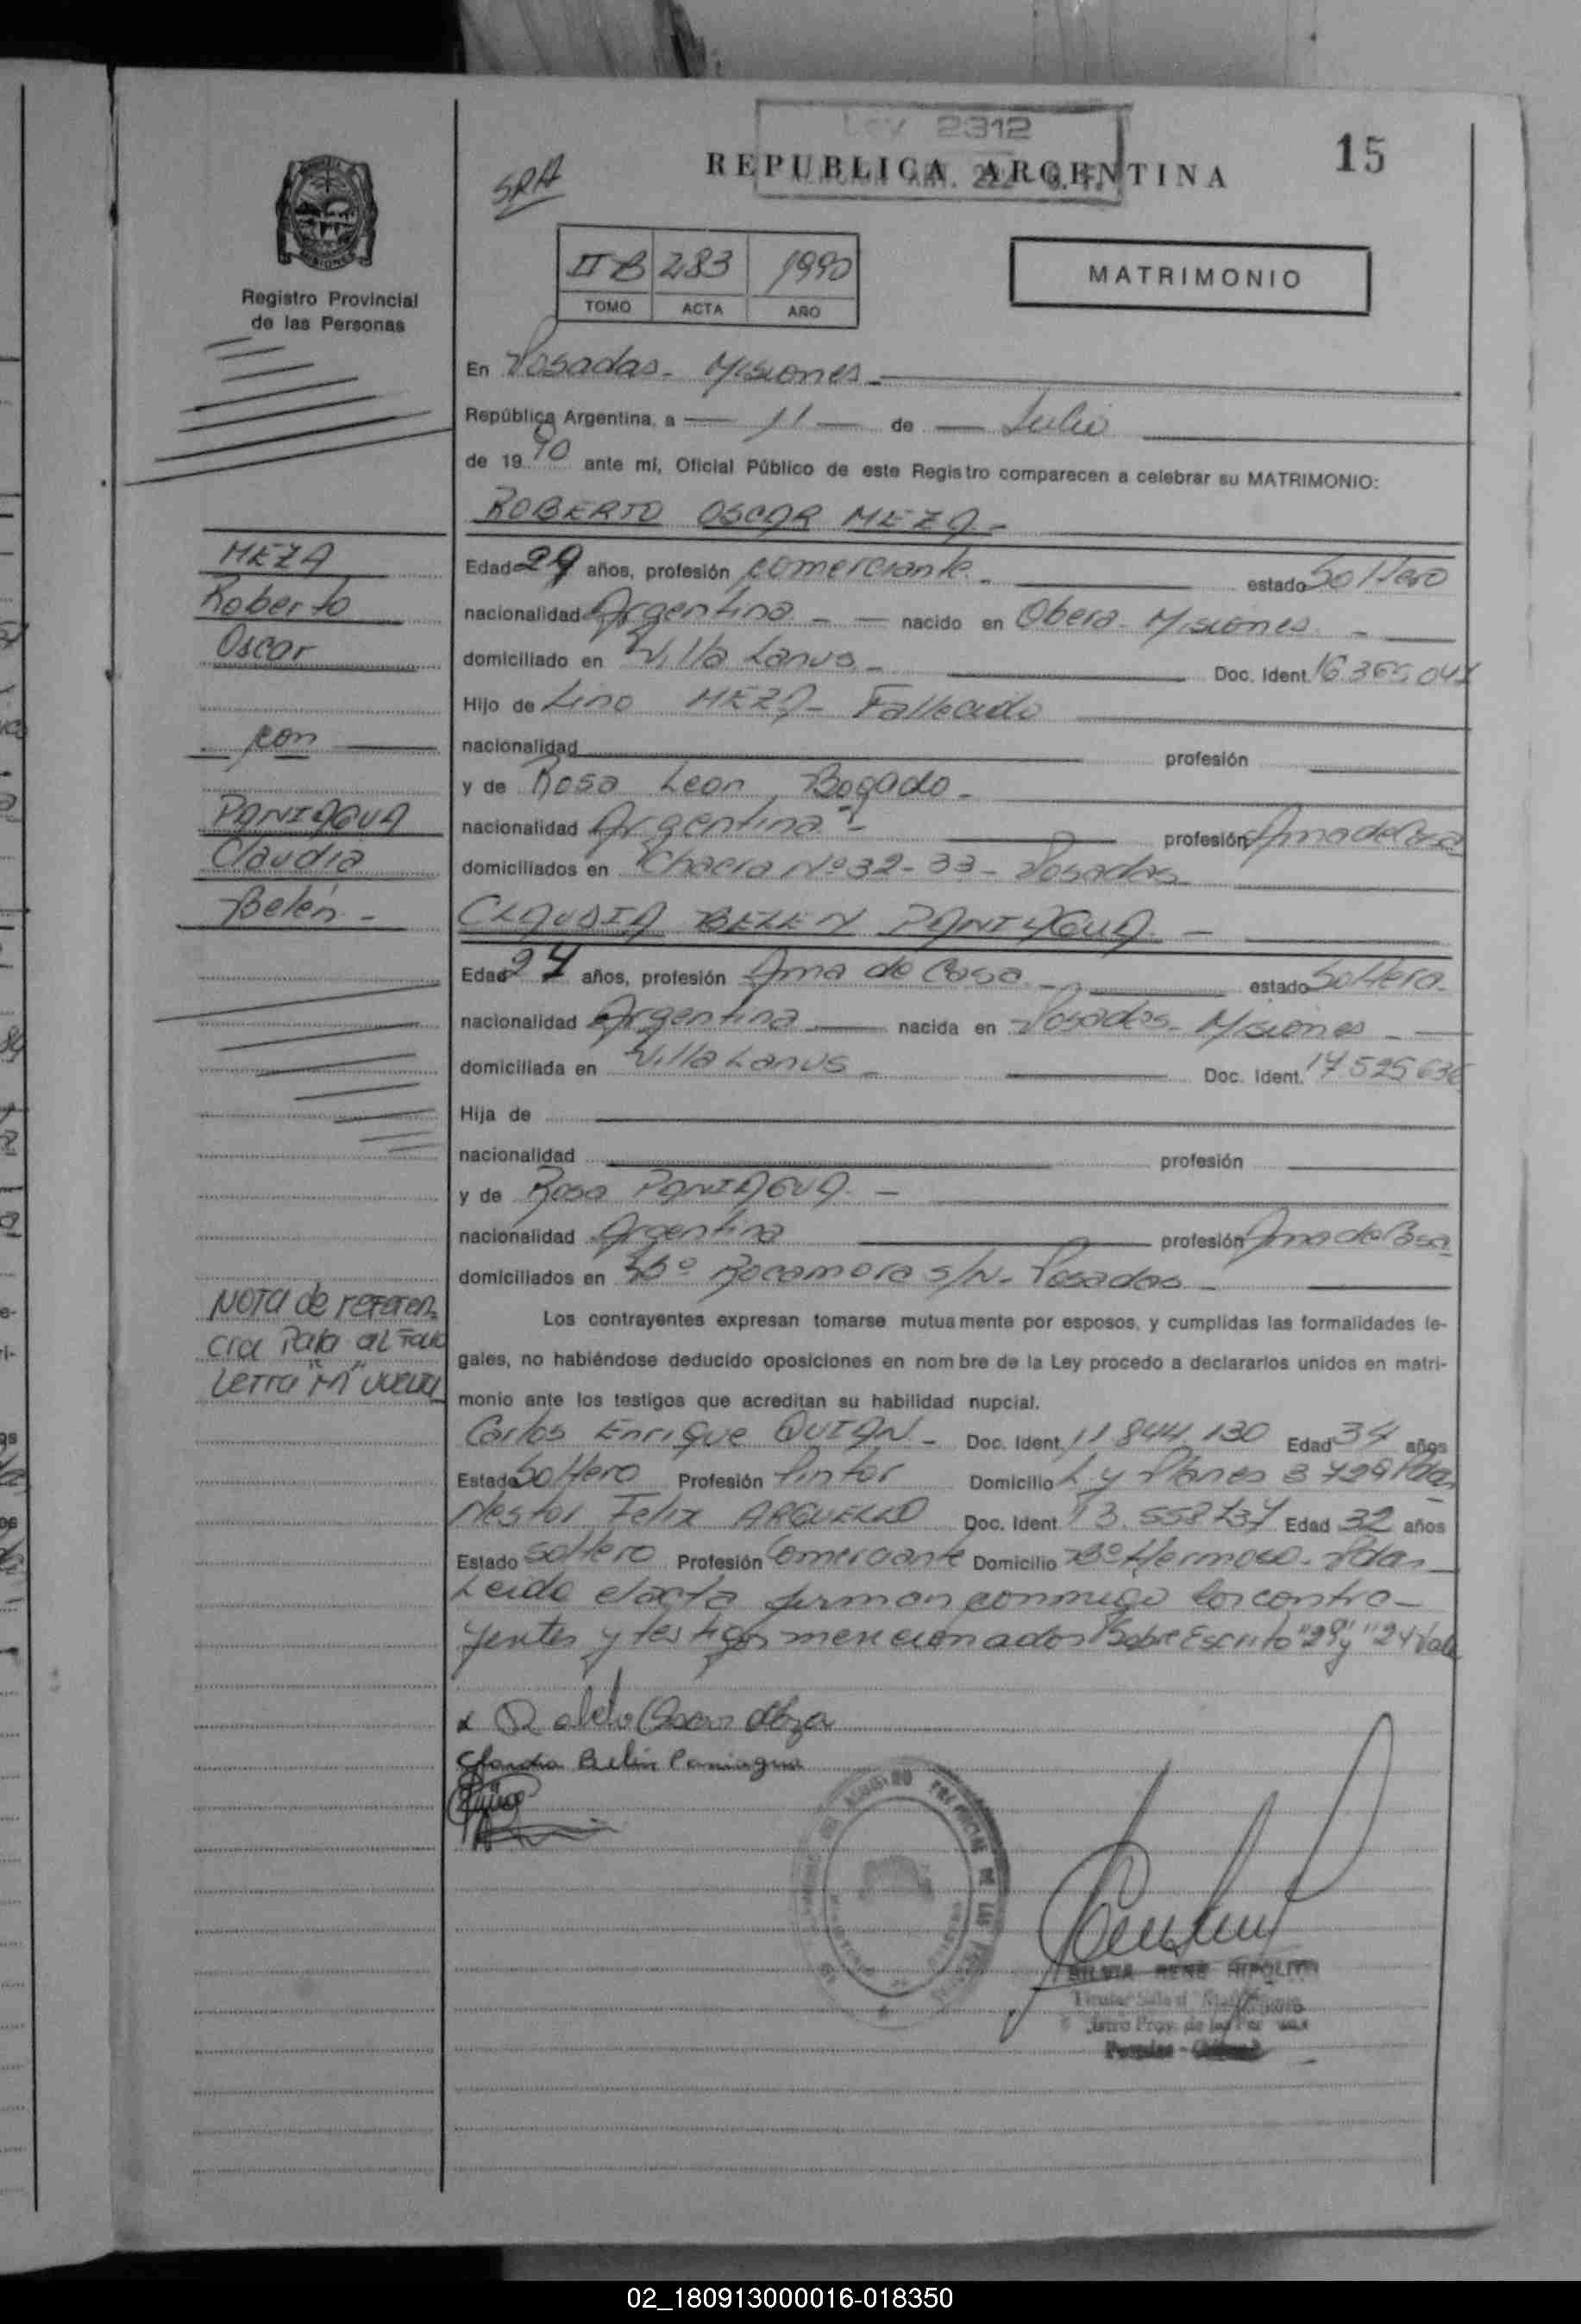 Ley 2312
15
SRA
REPUBLICA ARGENTINA
MISIONES
Registro Provincial
de las Personas
II B 283 1990
TOMO ACTA AÑO
MATRIMONIO
En Posadas - Misiones -
República Argentina, a 11 de Julio
de 1990 ante mí, Oficial Público de este Registro comparecen a celebrar su MATRIMONIO:
ROBERTO OSCAR MEZA -
MEZA
Roberto
Oscar
con
PANIAGUA
Claudia
Belén -
Edad 29 años, profesión comerciante - estado Soltero
nacionalidad Argentina - nacido en Obera - Misiones -
domiciliado en Villa Lanus - Doc. Ident.
Hijo de Lino MEZA - Fallecido
nacionalidad profesión
y de Rosa Leon Bogado -
nacionalidad Argentina - profesión Ama de Casa
domiciliados en Chacra Nº 32-33 - Posadas
CLAUDIA BELEN PANIAGUA -
Edad 24 años, profesión Ama de Casa - estado Soltera -
nacionalidad Argentina nacida en Posadas - Misiones -
domiciliada en Villa Lanus - Doc. Ident. 17.525.636
Hija de
nacionalidad profesión
y de Rosa PANIAGUA -
nacionalidad Argentina profesión Ama de Casa
domiciliados en Bº Rocamora s/N - Posadas -
NOTA de referen
cia Para al Folio
Letra "M" vuelta
Los contrayentes expresan tomarse mutuamente por esposos, y cumplidas las formalidades le-
gales, no habiéndose deducido oposiciones en nombre de la Ley procedo a declararlos unidos en matri-
monio ante los testigos que acreditan su habilidad nupcial.
Carlos Enrique QUIAN - Doc. Ident. 11.844.130 Edad 34 años
Estado Soltero Profesión Pintor Domicilio L y Planes 3729 Pdas
Nestor Felix ARGUELLO Doc. Ident. 13.558.737 Edad 32 años
Estado Soltero Profesión Comerciante Domicilio Bº Hermoso - Pdas -
Leida el acta firman conmigo los contra-
yentes y testigos mencionados Sobre Escrito "29" y "24" Vale
Roberto Oscar Meza
Claudia Belén Paniagua
REGISTRO PROVINCIAL DE LAS PERSONAS
SILVIA RENE HIPOLITO
02_180913000016-018350